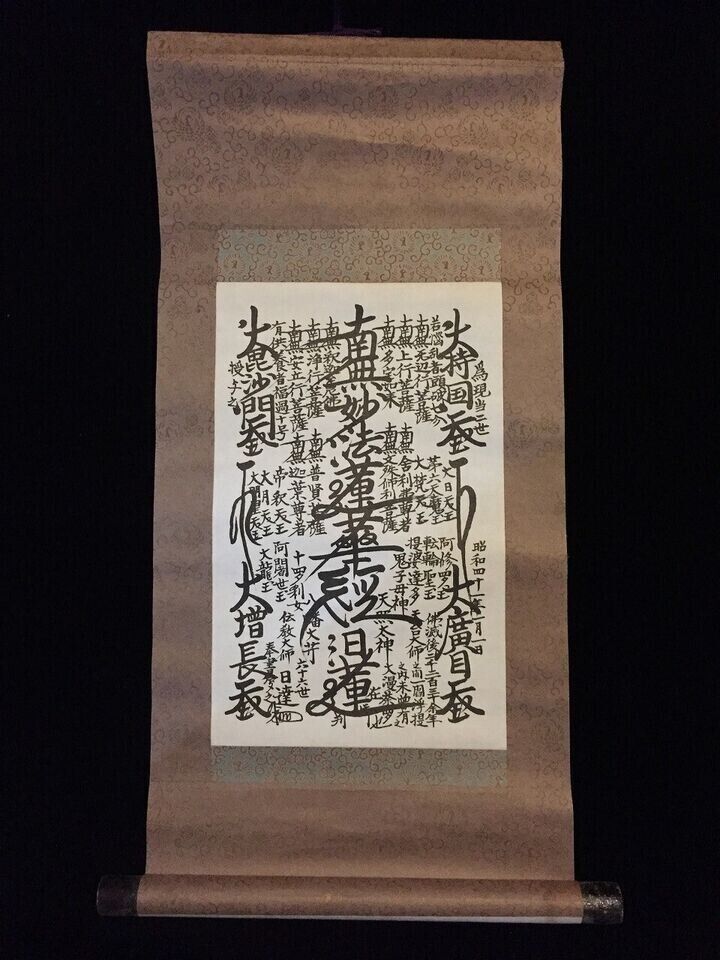 為現当二世
昭和四十一年一月一日
大持国天王
大廣目天王
若悩乱者頭破七分
南無无辺行菩薩
南無上行菩薩
南無多宝如来
大日天王
第六天魔王
大梵天王
南無舎利弗尊者
南無文殊師利菩薩
阿修罗王
転輪聖王
提婆達多
鬼子母神
天台大師
天照太神
佛滅後二千二百三十余年
之間一閻浮提
之内未曽有之
大漫荼罗也
南無妙法蓮華経
日蓮
在御判
南無釈迦牟尼佛
南無浄行菩薩
南無安立行菩薩
有供養者福過十号
南無普賢菩薩
南無迦葉尊者
帝釈天王
大月天王
大明星天王
十罗刹女
阿闍世王
大龍王
八幡大菩薩
伝教大師
六十六世
日達
奉書写之
大毘沙門天王
授与之
大増長天王